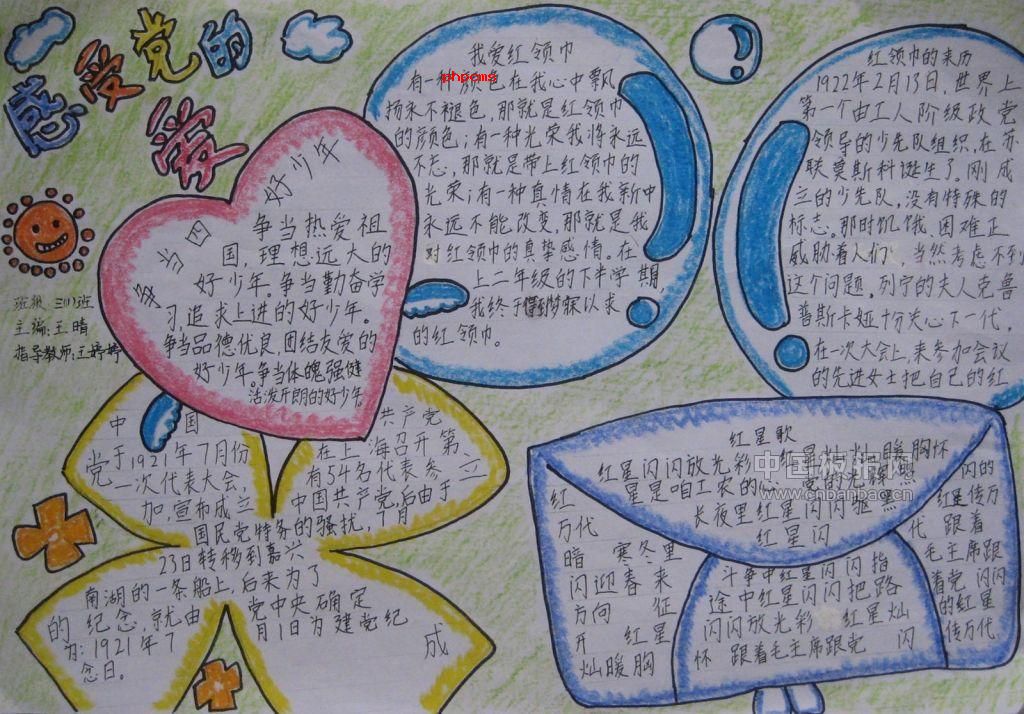 感受党的
爱
班级 三(1)班
主编:王晴
指导教师:王婷婷
争当四好少年
争当热爱祖
国,理想远大的
好少年。争当勤奋学
习,追求上进的好少年。
争当品德优良,团结友爱的
好少年。争当体魄强健
活泼开朗的好少年
我爱红领巾
phpcms
有一种颜色在我心中飘
扬永不褪色,那就是红领巾
的颜色;有一种光荣我将永远
不忘,那就是带上红领巾的
光荣;有一种真情在我新中
永远不能改变,那就是我
对红领巾的真挚感情。在
上二年级的下半学期,
我终于得到梦寐以求
的红领巾。
红领巾的来历
1922年2月13日,世界上
第一个由工人阶级政党
领导的少先队组织,在苏
联莫斯科诞生了。刚成
立的少先队,没有特殊的
标志。那时饥饿、困难正
威胁着人们,当然考虑不到
这个问题。列宁的夫人克鲁
普斯卡娅十分关心下一代,
在一次大会上,来参加会议
的先进女士把自己的红
中国共产党
党于1921年7月份在上海召开第
一次代表大会,有54名代表参
加,宣布成立中国共产党,后由于
国民党特务的骚扰,7月
23日转移到嘉兴
南湖的一条船上,后来为了
的纪念,就由党中央确定
为:1921年7月1日为建党纪
念日。
立
成
红星歌
红星闪闪放光彩 红星灿灿暖胸怀
红星是咱工农的心 党的光辉照
万代
长夜里红星闪闪驱黑
暗 寒冬里
红星闪
闪迎春来
斗争中红星闪闪指
方向 征
途中红星闪闪把路
开 红星
闪闪放光彩 红星灿
灿暖胸
怀 跟着毛主席跟党 闪
闪的
红星传万
代 跟着
毛主席跟
着党 闪闪
的红星
传万代
中国板报网
www.cnbanbao.cn